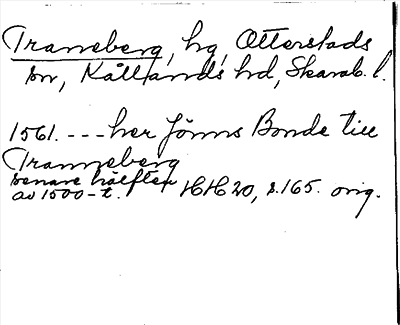 Traneberg, hg, Otterstads
sn, Kållands hd, Skarab. l.
1561. --- her Jöns Bonde till
Tranneberg
senare hälften
av 1500-t. HH 20, s. 165. orig.